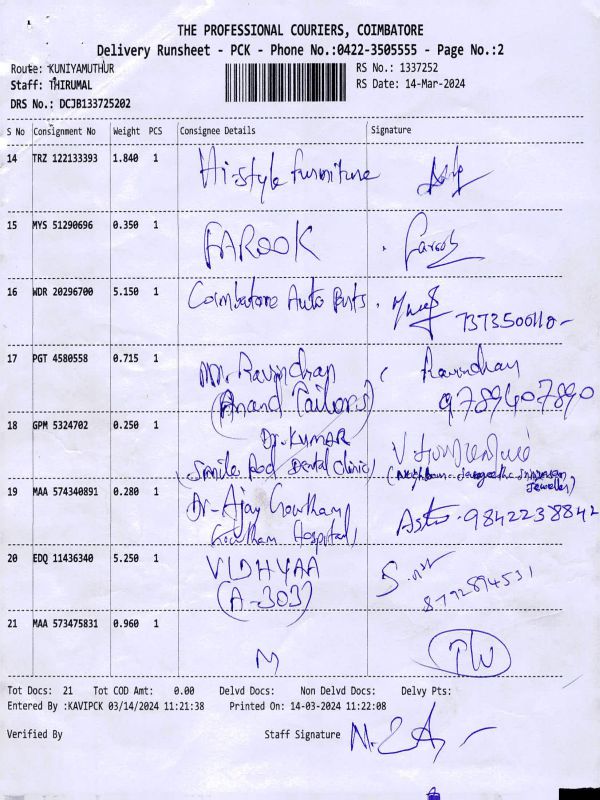 THE PROFESSIONAL COURIERS, COIMBATORE
Delivery Runsheet - PCK - Phone No.:0422-3505555 - Page No.:2
Route: KUNIYAMUTHUR RS No.: 1337252
Staff: THIRUMAL RS Date: 14-Mar-2024
DRS No.: DCJB133725202
S No Consignment No Weight PCS Consignee Details Signature
14 TRZ 122133393 1.840 1 Hi-style furniture
15 MYS 51290696 0.350 1 FAROOK Farook
16 WDR 20296700 5.150 1 Coimbatore Auto Parts.
7373500110-
17 PGT 4580558 0.715 1 Mr. Ravindran Ravindran
(Anand Tailors) 9789407890
18 GPM 5324702 0.250 1 Dr. KUMAR
(Smile Pod Dental Clinic)
19 MAA 574340891 0.280 1 Dr-Ajay Gowtham
Gowtham Hospital) 9842238842
20 EDQ 11436340 5.250 1 VIDHYAA
(A-303) 8792894531
21 MAA 573475831 0.960 1
Tot Docs: 21 Tot COD Amt: 0.00 Delvd Docs: Non Delvd Docs: Delvy Pts:
Entered By :KAVIPCK 03/14/2024 11:21:38 Printed On: 14-03-2024 11:22:08
Verified By Staff Signature